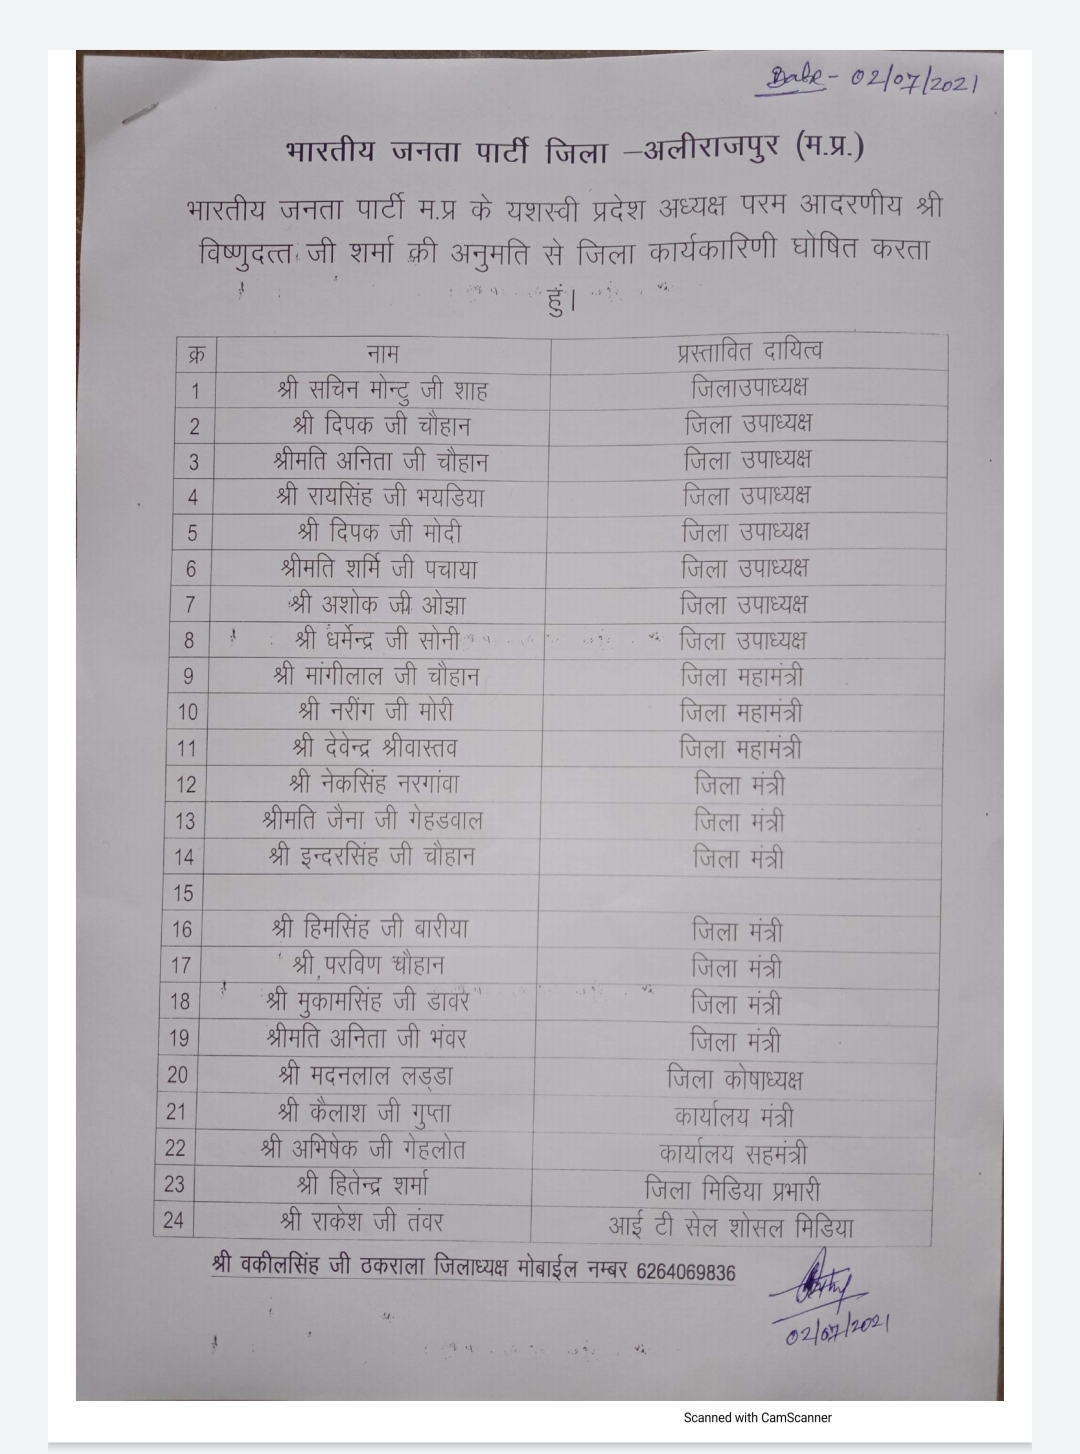 Date - 02/07/2021
भारतीय जनता पार्टी जिला –अलीराजपुर (म.प्र.)
भारतीय जनता पार्टी म.प्र के यशस्वी प्रदेश अध्यक्ष परम आदरणीय श्री
विष्णुदत्त जी शर्मा की अनुमति से जिला कार्यकारिणी घोषित करता
हुं।
क्र नाम प्रस्तावित दायित्व
1 श्री सचिन मोन्टु जी शाह जिलाउपाध्यक्ष
2 श्री दिपक जी चौहान जिला उपाध्यक्ष
3 श्रीमति अनिता जी चौहान जिला उपाध्यक्ष
4 श्री रायसिंह जी भयडिया जिला उपाध्यक्ष
5 श्री दिपक जी मोदी जिला उपाध्यक्ष
6 श्रीमति शर्मि जी पचाया जिला उपाध्यक्ष
7 श्री अशोक जी ओझा जिला उपाध्यक्ष
8 श्री धर्मेन्द्र जी सोनी जिला उपाध्यक्ष
9 श्री मांगीलाल जी चौहान जिला महामंत्री
10 श्री नरींग जी मोरी जिला महामंत्री
11 श्री देवेन्द्र श्रीवास्तव जिला महामंत्री
12 श्री नेकसिंह नरगांवा जिला मंत्री
13 श्रीमति जैना जी गेहडवाल जिला मंत्री
14 श्री इन्दरसिंह जी चौहान जिला मंत्री
15
16 श्री हिमसिंह जी बारीया जिला मंत्री
17 श्री परविण चौहान जिला मंत्री
18 श्री मुकामसिंह जी डावर जिला मंत्री
19 श्रीमति अनिता जी भंवर जिला मंत्री
20 श्री मदनलाल लड्डा जिला कोषाध्यक्ष
21 श्री कैलाश जी गुप्ता कार्यालय मंत्री
22 श्री अभिषेक जी गेहलोत कार्यालय सहमंत्री
23 श्री हितेन्द्र शर्मा जिला मिडिया प्रभारी
24 श्री राकेश जी तंवर आई टी सेल शोसल मिडिया
श्री वकीलसिंह जी ठकराला जिलाध्यक्ष मोबाईल नम्बर 6264069836
02/07/2021
Scanned with CamScanner